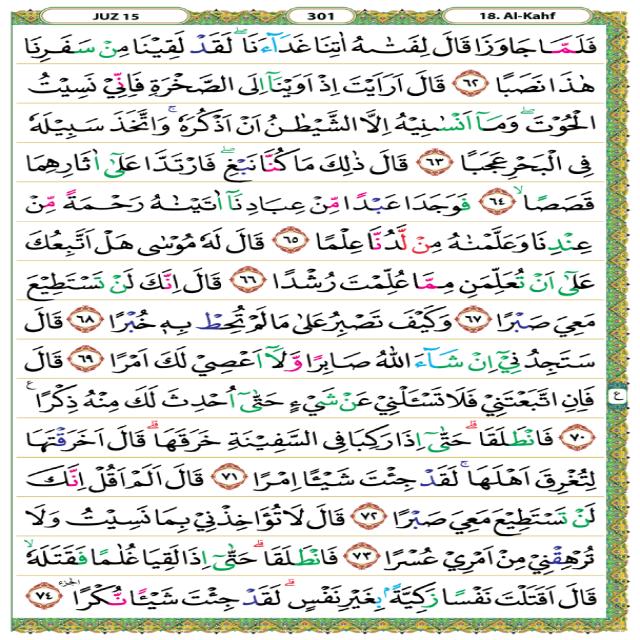 JUZ 15 301 18. Al-Kahf
فَلَمَّا جَاوَزَا قَالَ لِفَتٰىهُ اٰتِنَا غَدَاۤءَنَاۖ لَقَدْ لَقِيْنَا مِنْ سَفَرِنَا
هٰذَا نَصَبًا ٦٢ قَالَ اَرَاَيْتَ اِذْ اَوَيْنَآ اِلَى الصَّخْرَةِ فَاِنِّيْ نَسِيْتُ
الْحُوْتَۖ وَمَآ اَنْسٰىنِيْهُ اِلَّا الشَّيْطٰنُ اَنْ اَذْكُرَهٗۚ وَاتَّخَذَ سَبِيْلَهٗ
فِى الْبَحْرِ عَجَبًا ٦٣ قَالَ ذٰلِكَ مَا كُنَّا نَبْغِۖ فَارْتَدَّا عَلٰٓى اٰثَارِهِمَا
قَصَصًاۙ ٦٤ فَوَجَدَا عَبْدًا مِّنْ عِبَادِنَآ اٰتَيْنٰهُ رَحْمَةً مِّنْ
عِنْدِنَا وَعَلَّمْنٰهُ مِنْ لَّدُنَّا عِلْمًا ٦٥ قَالَ لَهٗ مُوْسٰى هَلْ اَتَّبِعُكَ
عَلٰٓى اَنْ تُعَلِّمَنِ مِمَّا عُلِّمْتَ رُشْدًا ٦٦ قَالَ اِنَّكَ لَنْ تَسْتَطِيْعَ
مَعِيَ صَبْرًا ٦٧ وَكَيْفَ تَصْبِرُ عَلٰى مَا لَمْ تُحِطْ بِهٖ خُبْرًا ٦٨ قَالَ
سَتَجِدُنِيْٓ اِنْ شَاۤءَ اللّٰهُ صَابِرًا وَّلَآ اَعْصِيْ لَكَ اَمْرًا ٦٩ قَالَ
فَاِنِ اتَّبَعْتَنِيْ فَلَا تَسْـَٔلْنِيْ عَنْ شَيْءٍ حَتّٰٓى اُحْدِثَ لَكَ مِنْهُ ذِكْرًا ࣖ ع
٧٠ فَانْطَلَقَاۗ حَتّٰٓى اِذَا رَكِبَا فِى السَّفِيْنَةِ خَرَقَهَاۗ قَالَ اَخَرَقْتَهَا
لِتُغْرِقَ اَهْلَهَاۚ لَقَدْ جِئْتَ شَيْـًٔا اِمْرًا ٧١ قَالَ اَلَمْ اَقُلْ اِنَّكَ
لَنْ تَسْتَطِيْعَ مَعِيَ صَبْرًا ٧٢ قَالَ لَا تُؤَاخِذْنِيْ بِمَا نَسِيْتُ وَلَا
تُرْهِقْنِيْ مِنْ اَمْرِيْ عُسْرًا ٧٣ فَانْطَلَقَاۗ حَتّٰٓى اِذَا لَقِيَا غُلٰمًا فَقَتَلَهٗۙ
قَالَ اَقَتَلْتَ نَفْسًا زَكِيَّةًۢ بِغَيْرِ نَفْسٍۗ لَقَدْ جِئْتَ شَيْـًٔا نُّكْرًا الجزء ٧٤